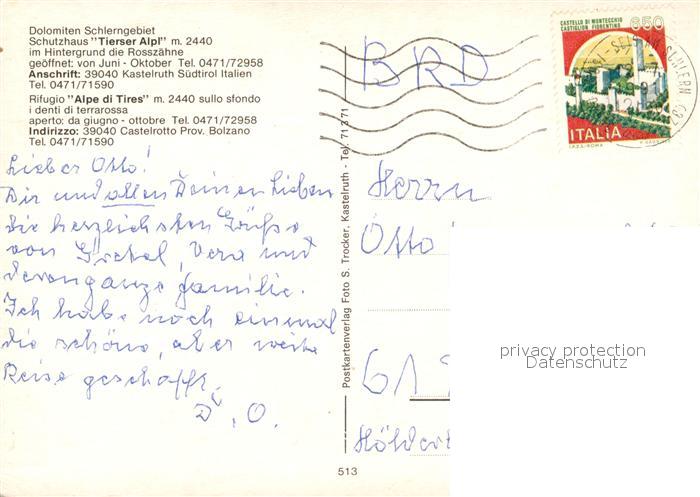 Dolomiten Schlerngebiet
Schutzhaus "Tierser Alpl" m. 2440
im Hintergrund die Rosszähne
geöffnet: von Juni - Oktober Tel. 0471/72958
Anschrift: 39040 Kastelruth Südtirol Italien
Tel. 0471/71590
Rifugio "Alpe di Tires" m. 2440 sullo sfondo
i denti di terrarossa
aperto: da giugno - ottobre Tel. 0471/72958
Indirizzo: 39040 Castelrotto Prov. Bolzano
Tel. 0471/71590
Lieber Otto!
Dir und allen Deinen Lieben
die herzlichsten Grüße
von Gretel, Vera und
deren ganze Familie.
Ich habe noch einmal
die schöne, aber weite
Reise geschafft.
D. O.
513
Postkartenverlag Foto S. Trocker, Kastelruth - Tel. 71371
BRD
CASTELLO DI MONTECCHIO
CASTIGLION FIORENTINO
650
ITALIA
I.P.Z.S. ROMA
Herrn
Otto
61
Hölder
privacy protection
Datenschutz